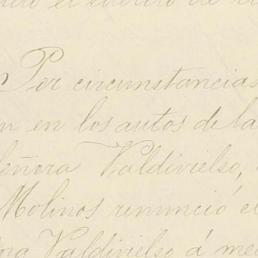 el
Por circunstancias
en los autos de la
Valdivielso,
Molinos renunció
Valdivielso á